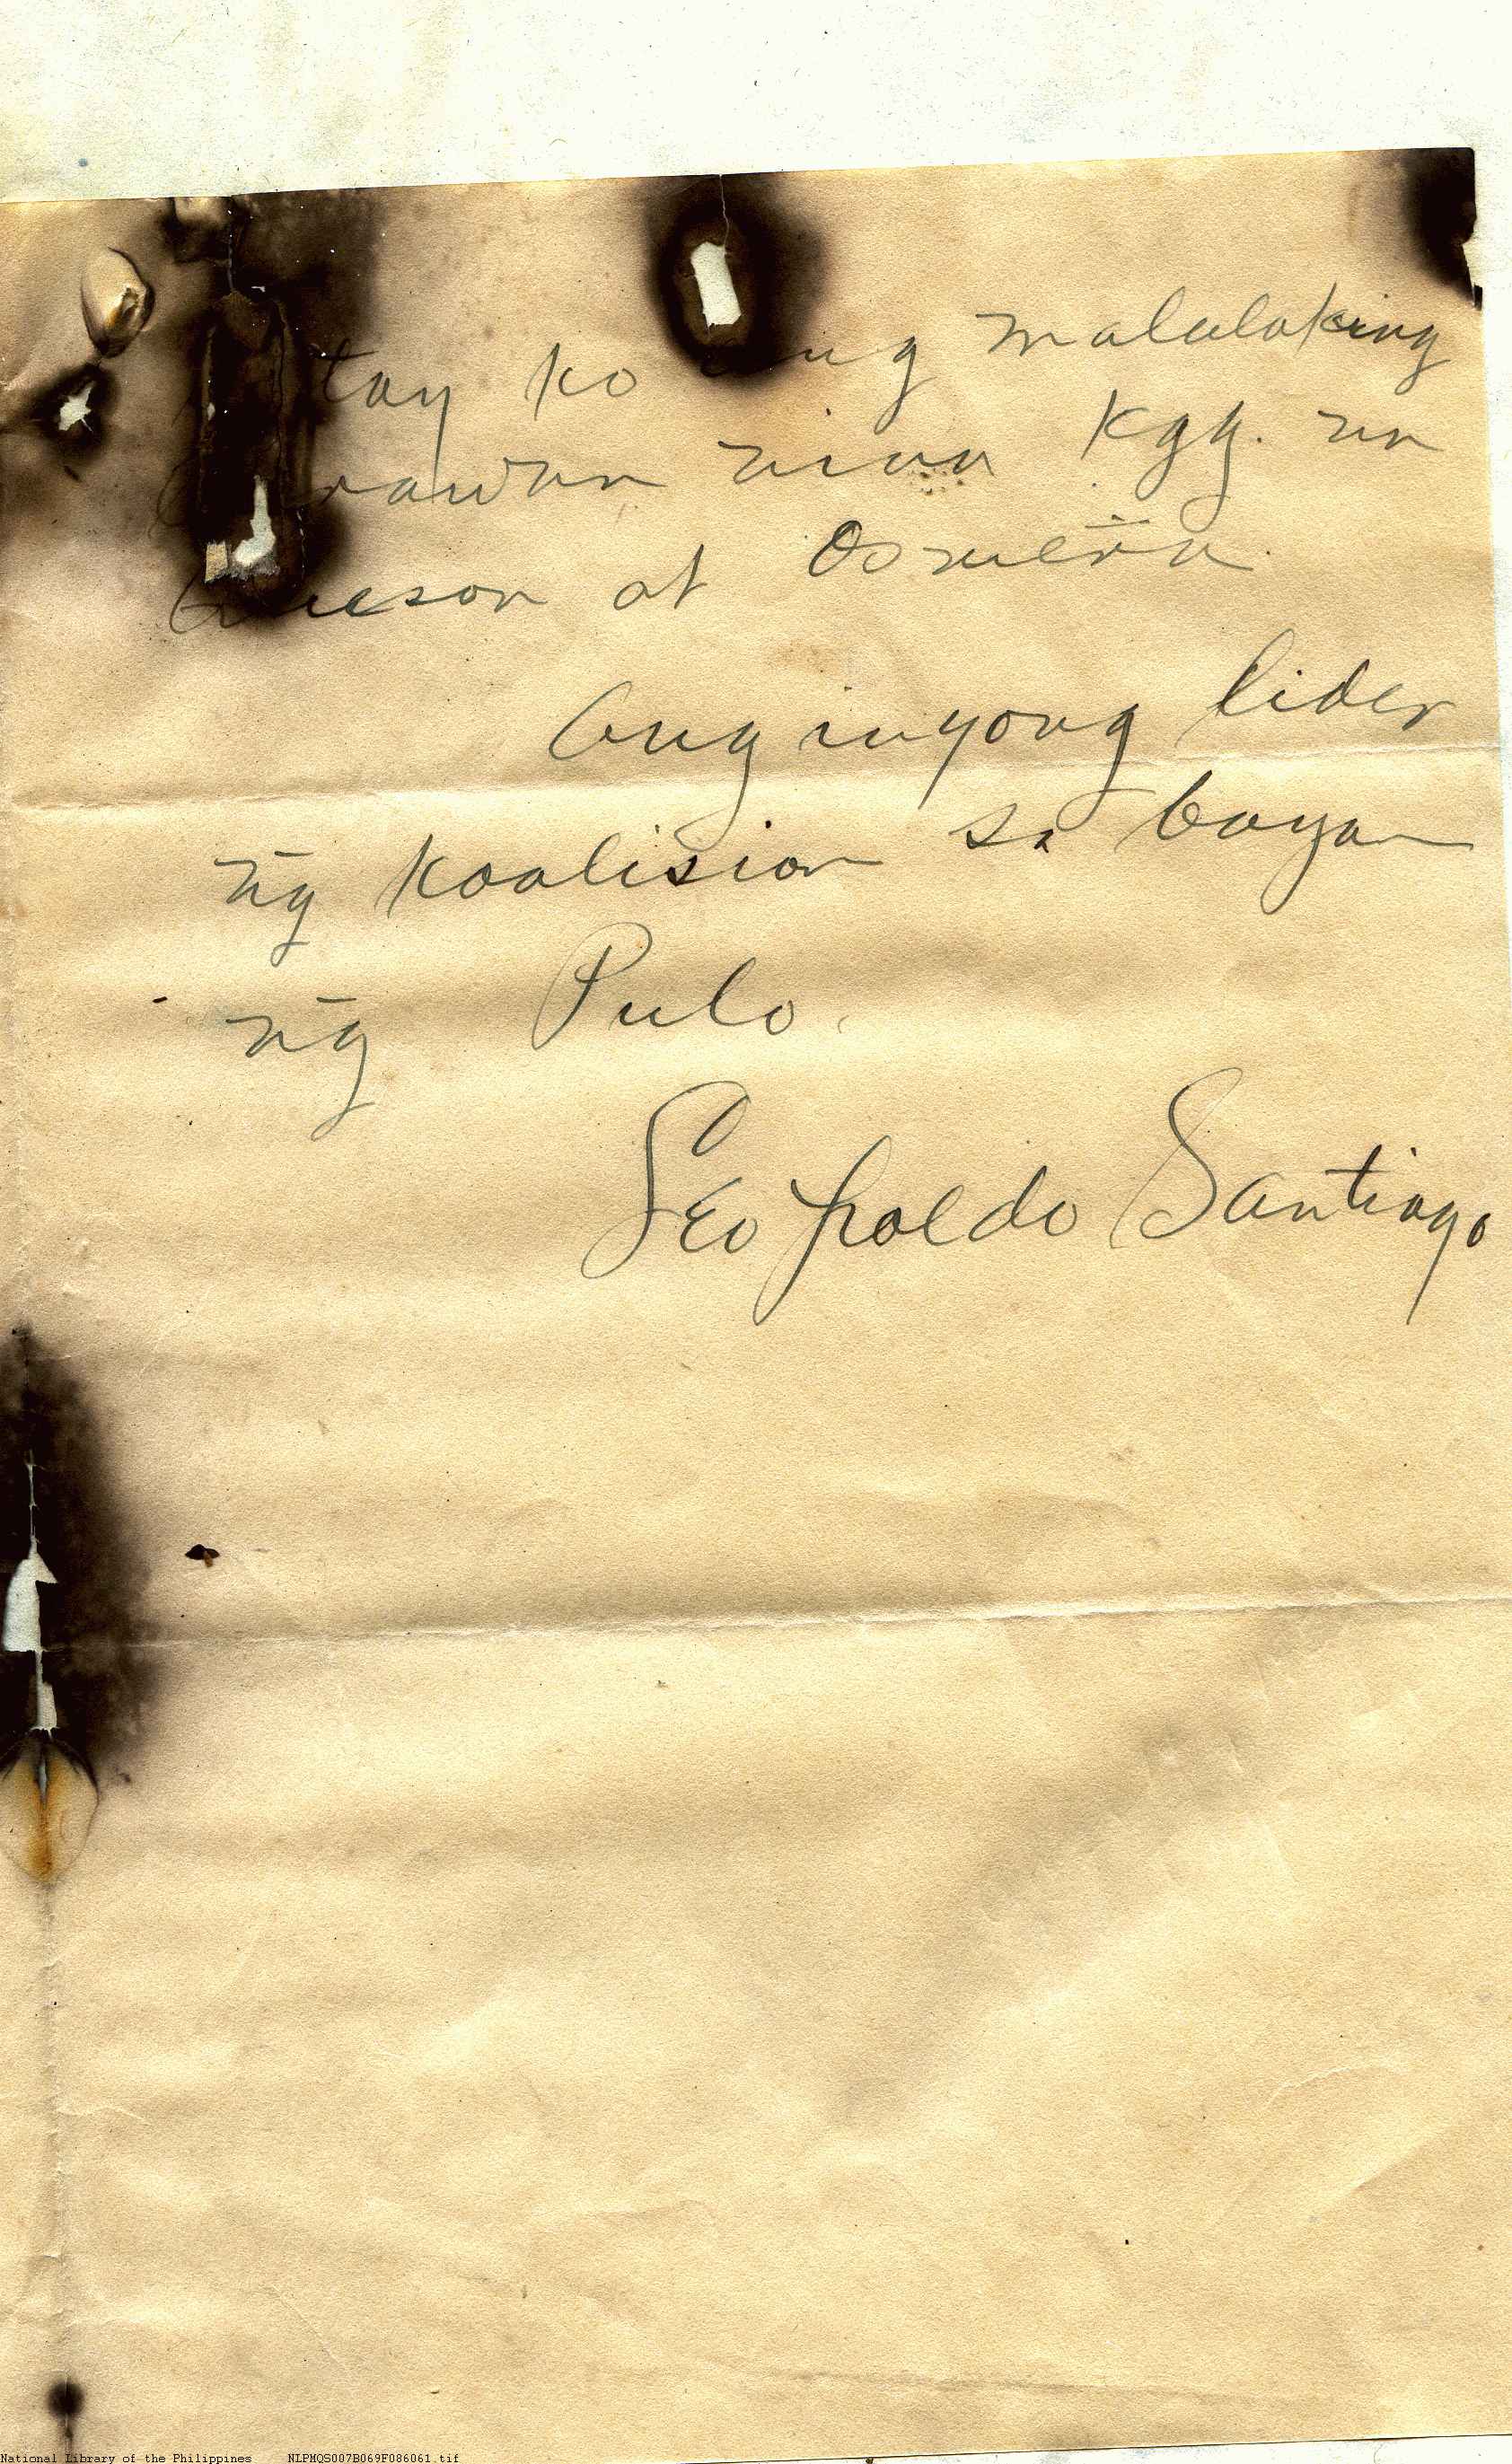 ko ang malalaking
nina Kgg. na
Queson at Osmeña.
Ang inyong lider
n̄g koalision sa bayan
n̄g Pulo.
Leopoldo Santiago
National Library of the Philippines NLPMQS007B069F086061.tif